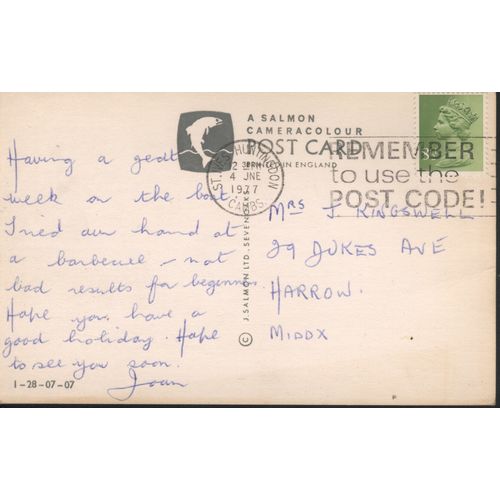 A SALMON
CAMERACOLOUR
POST CARD
PRINTED IN ENGLAND
ST. IVES HUNTINGDON
4 JNE
1977
CAMBS
REMEMBER
to use the
POST CODE!
Having a
week on the boat
Tried our hand at
a barbecue – not
bad results for beginners.
Hope you have a
good holiday. Hope
to see you soon.
Joan
1-28-07-07
© J. SALMON LTD., SEVENOAKS
MRS J. KINGSWELL
29 JUKES AVE
HARROW.
MIDDX